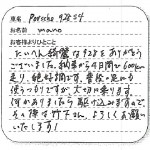 車名 Porsche 928S4
お名前 mano
お客様よりひとこと
たいへん綺麗な車をありがとう
ございました。納車から4日間で600km
走り、絶好調です。普段の足にも
使うつもりですが大切に乗ります。
何かありましたら駆け込みますので
その際は竹下さん、よろしくお願い
いたします!